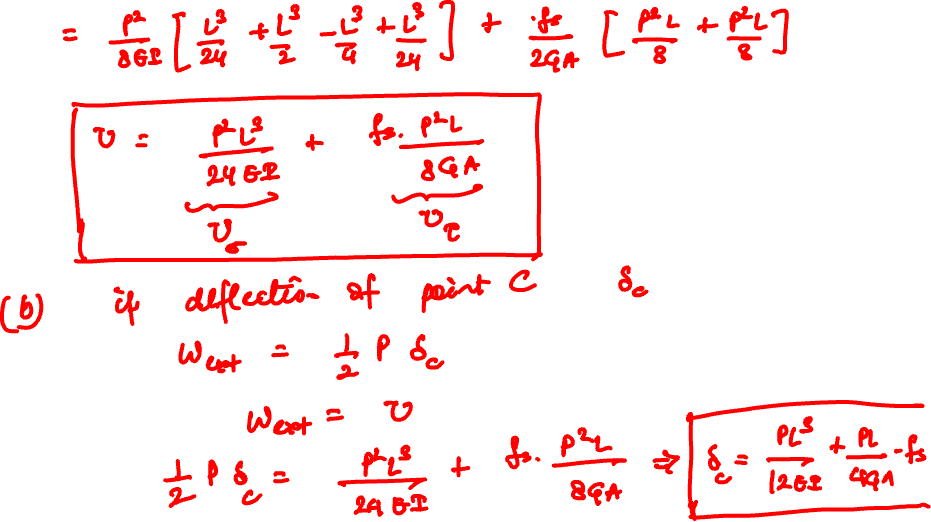 = P²/8EI [ L³/24 + L³/2 - L³/4 + L³/24 ] + fs/2GA [ P²L/8 + P²L/8 ]
U = P²L³/24EI + fs. P²L/8GA
U_σ U_τ
(b) if deflection of point C δ_c
W_ext = 1/2 P δ_c
W_ext = U
1/2 P δ_c = P²L³/24EI + fs. P²L/8GA ⇒ δ_c = PL³/12EI + PL/4GA · fs